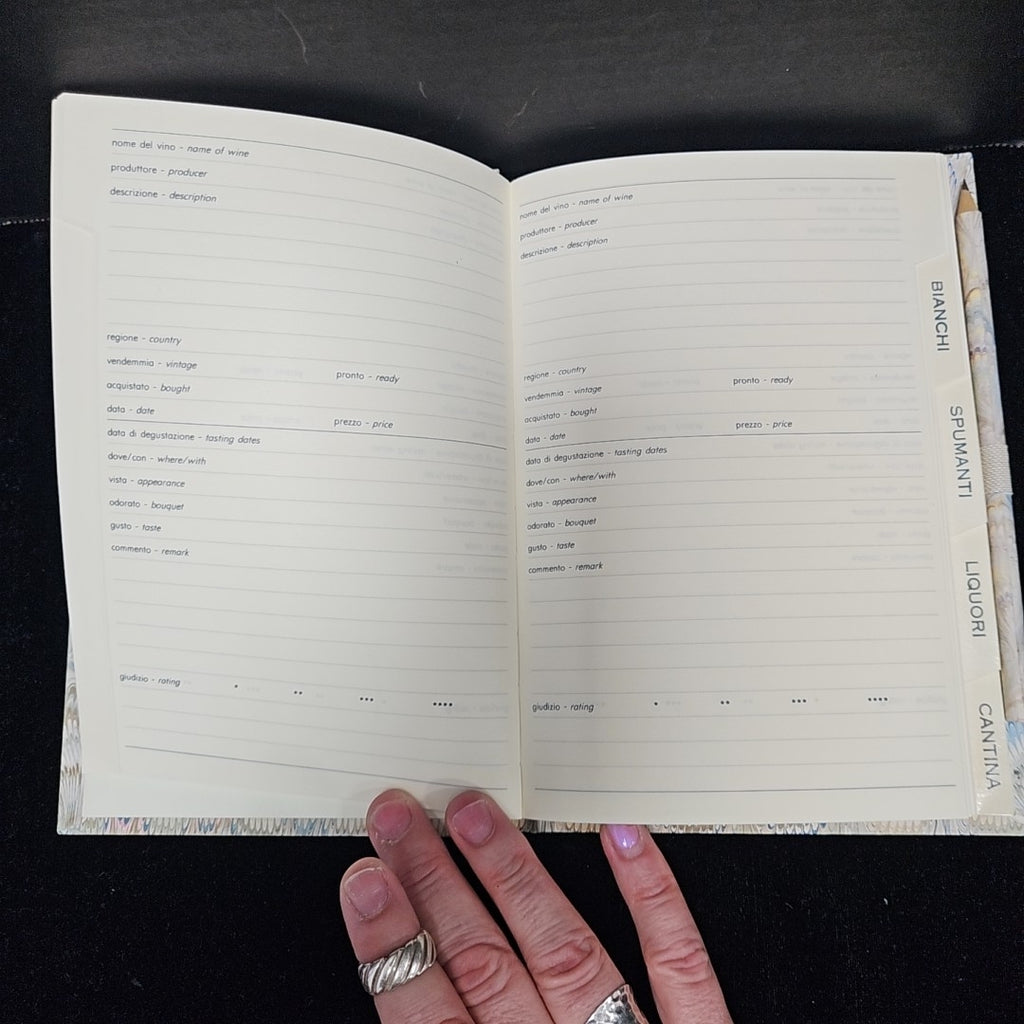 nome del vino - name of wine
produttore - producer
descrizione - description
regione - country
vendemmia - vintage pronto - ready
acquistato - bought
data - date prezzo - price
data di degustazione - tasting dates
dove/con - where/with
vista - appearance
odorato - bouquet
gusto - taste
commento - remark
giudizio - rating • •• ••• ••••
nome del vino - name of wine
produttore - producer
descrizione - description
regione - country
vendemmia - vintage pronto - ready
acquistato - bought
data - date prezzo - price
data di degustazione - tasting dates
dove/con - where/with
vista - appearance
odorato - bouquet
gusto - taste
commento - remark
giudizio - rating • •• ••• ••••
BIANCHI
SPUMANTI
LIQUORI
CANTINA